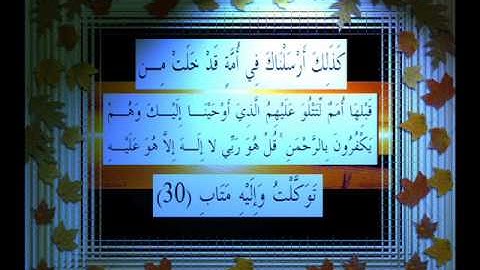 كَذَلِكَ أَرْسَلْنَاكَ فِي أُمَّةٍ قَدْ خَلَتْ مِن
قَبْلِهَا أُمَمٌ لِّتَتْلُوَ عَلَيْهِمُ الَّذِي أَوْحَيْنَا إِلَيْكَ وَهُمْ
يَكْفُرُونَ بِالرَّحْمَنِ ۚ قُلْ هُوَ رَبِّي لا إِلَهَ إِلاَّ هُوَ عَلَيْهِ
تَوَكَّلْتُ وَإِلَيْهِ مَتَابِ (30)